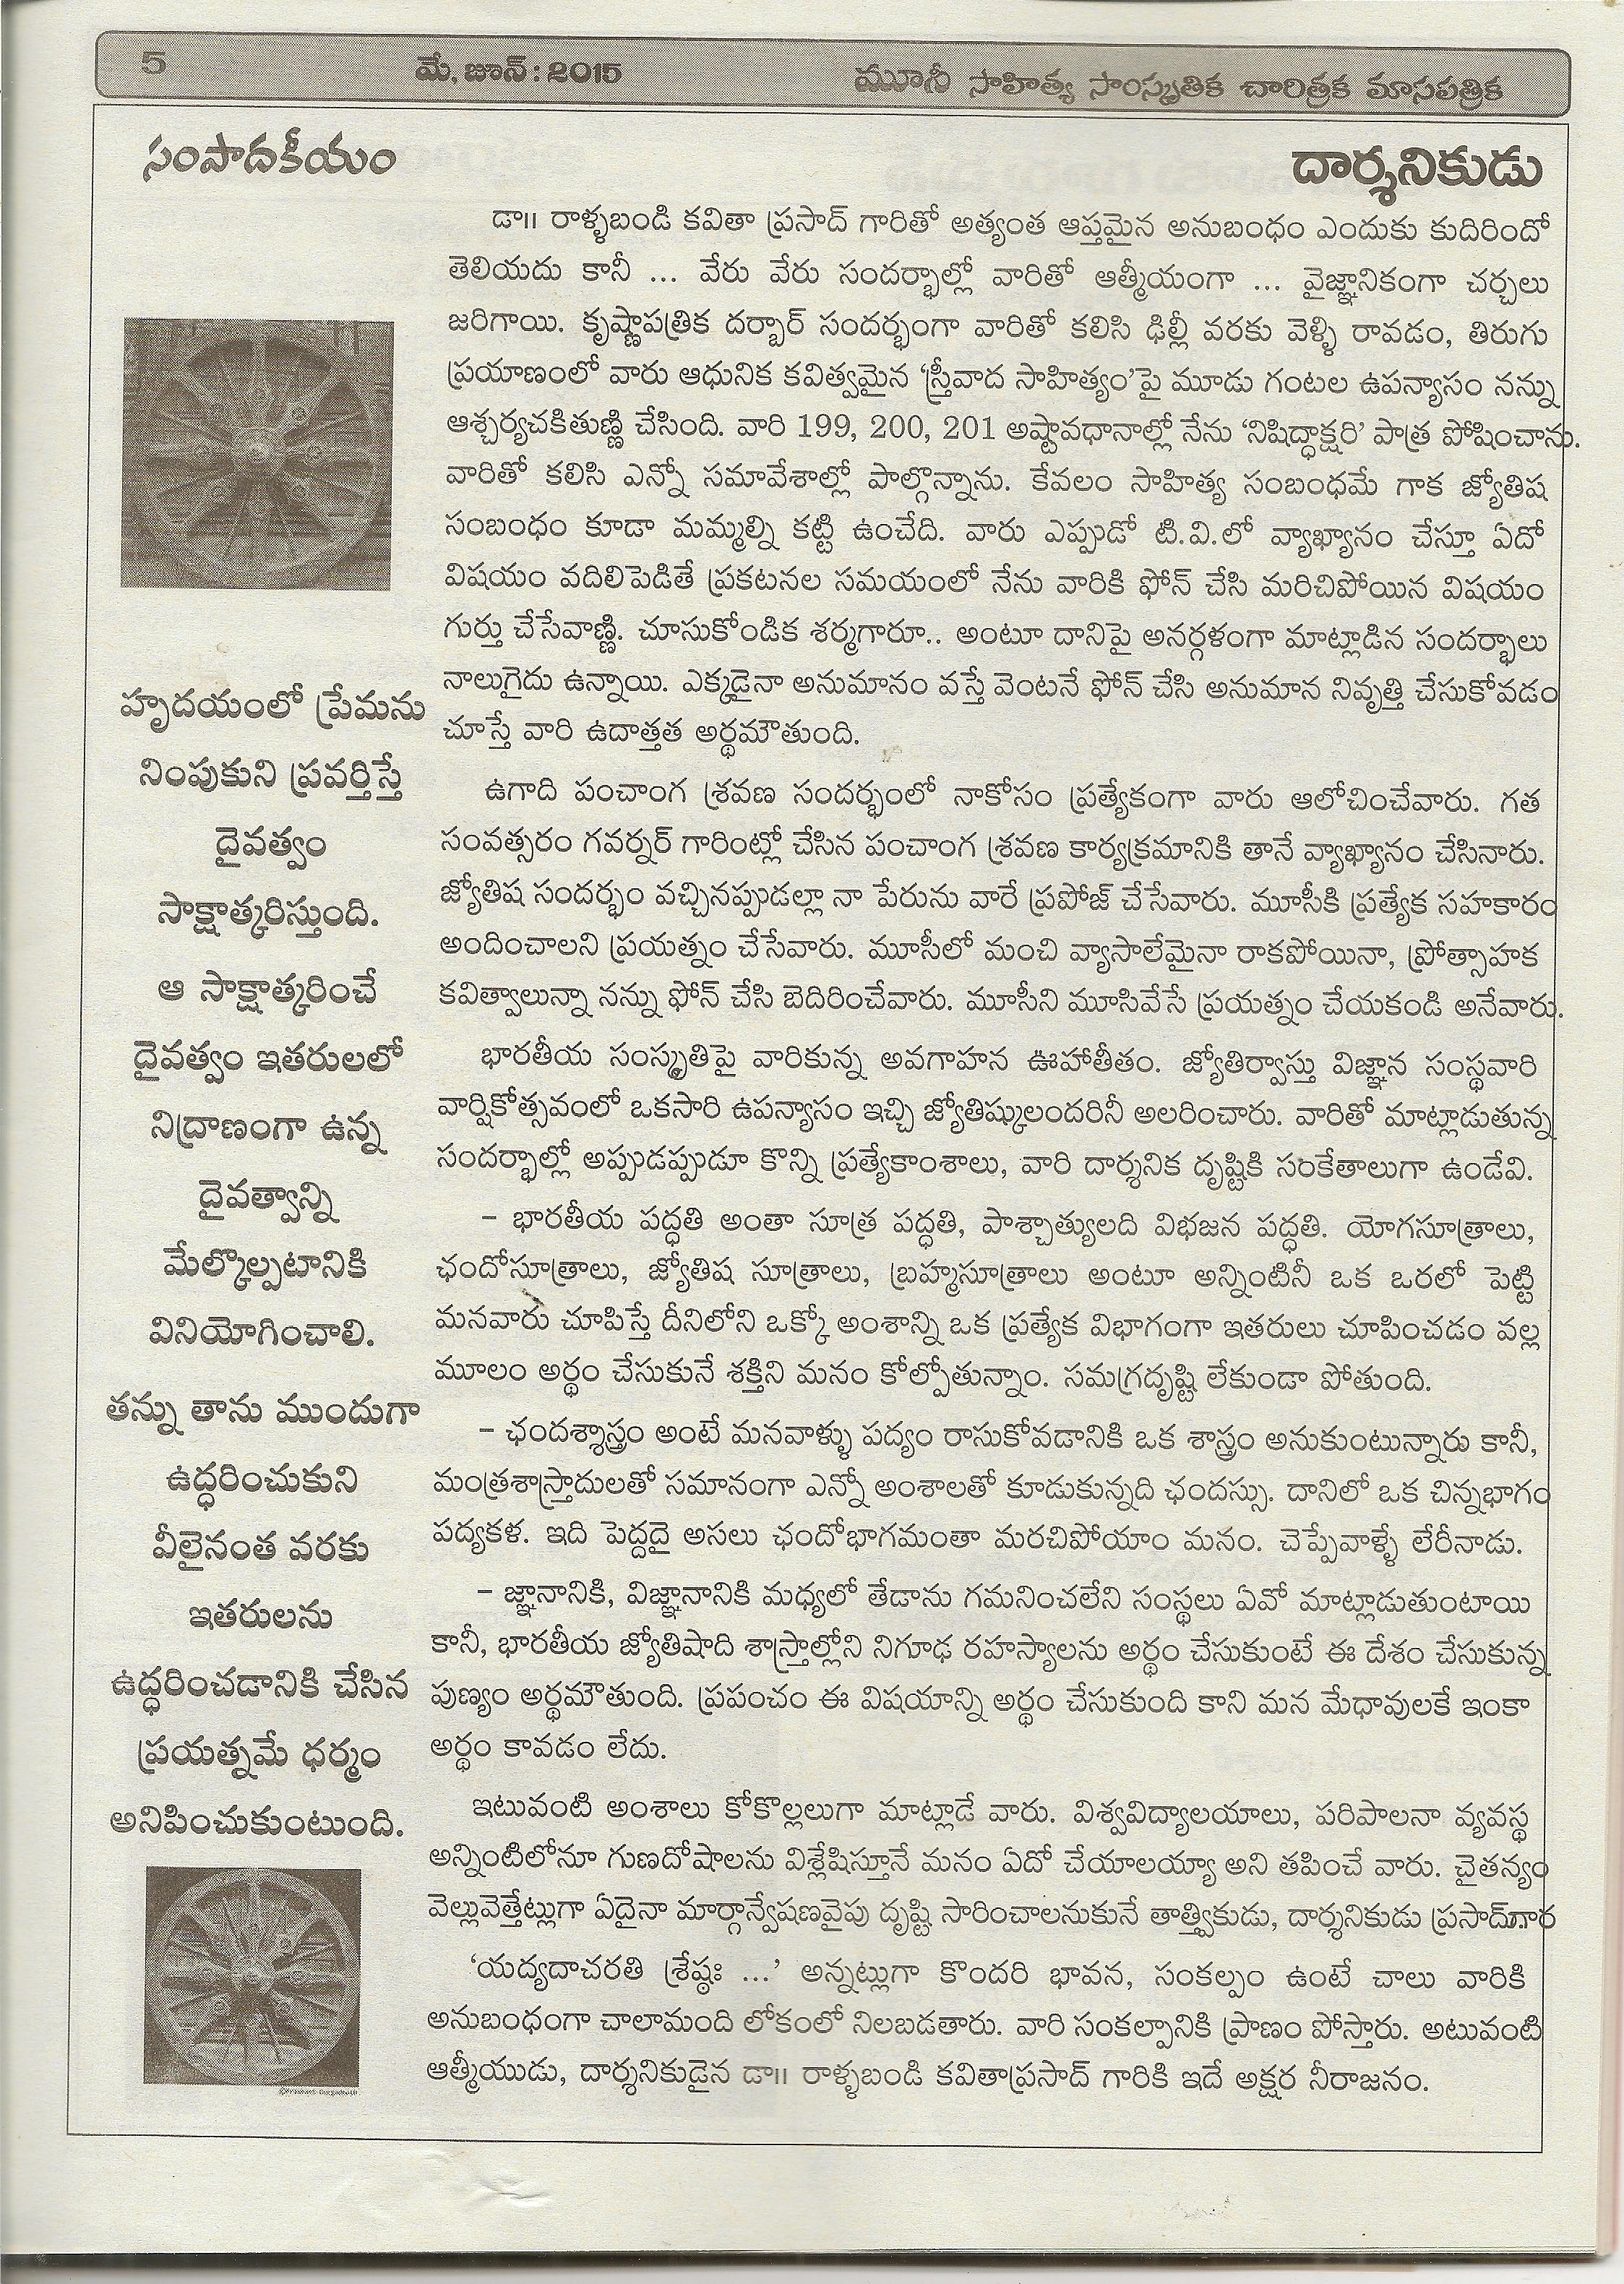 5
మే, జూన్ : 2015
మూసీ సాహిత్య సాంస్కృతిక చారిత్రక మాసపత్రిక
సంపాదకీయం
హృదయంలో ప్రేమను
నింపుకుని ప్రవర్తిస్తే
దైవత్వం
సాక్షాత్కరిస్తుంది.
ఆ సాక్షాత్కరించే
దైవత్వం ఇతరులలో
నిద్రాణంగా ఉన్న
దైవత్వాన్ని
మేల్కొల్పటానికి
వినియోగించాలి.
తన్ను తాను ముందుగా
ఉద్ధరించుకుని
వీలైనంత వరకు
ఇతరులను
ఉద్ధరించడానికి చేసిన
ప్రయత్నమే ధర్మం
అనిపించుకుంటుంది.
దార్శనికుడు
డా॥ రాళ్ళబండి కవితా ప్రసాద్ గారితో అత్యంత ఆప్తమైన అనుబంధం ఎందుకు కుదిరిందో
తెలియదు కానీ ... వేరు వేరు సందర్భాల్లో వారితో ఆత్మీయంగా ... వైజ్ఞానికంగా చర్చలు
జరిగాయి. కృష్ణాపత్రిక దర్బార్ సందర్భంగా వారితో కలిసి ఢిల్లీ వరకు వెళ్ళి రావడం, తిరుగు
ప్రయాణంలో వారు ఆధునిక కవిత్వమైన ‘స్త్రీవాద సాహిత్యం’పై మూడు గంటల ఉపన్యాసం నన్ను
ఆశ్చర్యచకితుణ్ణి చేసింది. వారి 199, 200, 201 అష్టావధానాల్లో నేను ‘నిషిద్ధాక్షరి’ పాత్ర పోషించాను.
వారితో కలిసి ఎన్నో సమావేశాల్లో పాల్గొన్నాను. కేవలం సాహిత్య సంబంధమే గాక జ్యోతిష
సంబంధం కూడా మమ్మల్ని కట్టి ఉంచేది. వారు ఎప్పుడో టి.వి.లో వ్యాఖ్యానం చేస్తూ ఏదో
విషయం వదిలిపెడితే ప్రకటనల సమయంలో నేను వారికి ఫోన్ చేసి మరిచిపోయిన విషయం
గుర్తు చేసేవాణ్ణి. చూసుకోండిక శర్మగారూ.. అంటూ దానిపై అనర్గళంగా మాట్లాడిన సందర్భాలు
నాలుగైదు ఉన్నాయి. ఎక్కడైనా అనుమానం వస్తే వెంటనే ఫోన్ చేసి అనుమాన నివృత్తి చేసుకోవడం
చూస్తే వారి ఉదాత్తత అర్థమౌతుంది.
ఉగాది పంచాంగ శ్రవణ సందర్భంలో నాకోసం ప్రత్యేకంగా వారు ఆలోచించేవారు. గత
సంవత్సరం గవర్నర్ గారింట్లో చేసిన పంచాంగ శ్రవణ కార్యక్రమానికి తానే వ్యాఖ్యానం చేసినారు.
జ్యోతిష సందర్భం వచ్చినప్పుడల్లా నా పేరును వారే ప్రపోజ్ చేసేవారు. మూసీకి ప్రత్యేక సహకారం
అందించాలని ప్రయత్నం చేసేవారు. మూసీలో మంచి వ్యాసాలేమైనా రాకపోయినా, ప్రోత్సాహక
కవిత్వాలున్నా నన్ను ఫోన్ చేసి బెదిరించేవారు. మూసీని మూసివేసే ప్రయత్నం చేయకండి అనేవారు.
భారతీయ సంస్కృతిపై వారికున్న అవగాహన ఊహాతీతం. జ్యోతిర్వాస్తు విజ్ఞాన సంస్థవారి
వార్షికోత్సవంలో ఒకసారి ఉపన్యాసం ఇచ్చి జ్యోతిష్కులందరినీ అలరించారు. వారితో మాట్లాడుతున్న
సందర్భాల్లో అప్పుడప్పుడూ కొన్ని ప్రత్యేకాంశాలు, వారి దార్శనిక దృష్టికి సంకేతాలుగా ఉండేవి.
– భారతీయ పద్ధతి అంతా సూత్ర పద్ధతి, పాశ్చాత్యులది విభజన పద్ధతి. యోగసూత్రాలు,
ఛందోసూత్రాలు, జ్యోతిష సూత్రాలు, బ్రహ్మసూత్రాలు అంటూ అన్నింటినీ ఒక ఒరలో పెట్టి
మనవారు చూపిస్తే దీనిలోని ఒక్కో అంశాన్ని ఒక ప్రత్యేక విభాగంగా ఇతరులు చూపించడం వల్ల
మూలం అర్థం చేసుకునే శక్తిని మనం కోల్పోతున్నాం. సమగ్రదృష్టి లేకుండా పోతుంది.
– ఛందశ్శాస్త్రం అంటే మనవాళ్ళు పద్యం రాసుకోవడానికి ఒక శాస్త్రం అనుకుంటున్నారు కానీ,
మంత్రశాస్త్రాదులతో సమానంగా ఎన్నో అంశాలతో కూడుకున్నది ఛందస్సు. దానిలో ఒక చిన్నభాగం
పద్యకళ. ఇది పెద్దదై అసలు ఛందోభాగమంతా మరచిపోయాం మనం. చెప్పేవాళ్ళే లేరీనాడు.
– జ్ఞానానికి, విజ్ఞానానికి మధ్యలో తేడాను గమనించలేని సంస్థలు ఏవో మాట్లాడుతుంటాయి
కానీ, భారతీయ జ్యోతిషాది శాస్త్రాల్లోని నిగూఢ రహస్యాలను అర్థం చేసుకుంటే ఈ దేశం చేసుకున్న
పుణ్యం అర్థమౌతుంది. ప్రపంచం ఈ విషయాన్ని అర్థం చేసుకుంది కాని మన మేధావులకే ఇంకా
అర్థం కావడం లేదు.
ఇటువంటి అంశాలు కోకొల్లలుగా మాట్లాడే వారు. విశ్వవిద్యాలయాలు, పరిపాలనా వ్యవస్థ
అన్నింటిలోనూ గుణదోషాలను విశ్లేషిస్తూనే మనం ఏదో చేయాలయ్యా అని తపించే వారు. చైతన్యం
వెల్లువెత్తేట్లుగా ఏదైనా మార్గాన్వేషణవైపు దృష్టి సారించాలనుకునే తాత్త్వికుడు, దార్శనికుడు
‘యద్యదాచరతి శ్రేష్ఠః ...’ అన్నట్లుగా కొందరి భావన, సంకల్పం ఉంటే చాలు వారికి
అనుబంధంగా చాలామంది లోకంలో నిలబడతారు. వారి సంకల్పానికి ప్రాణం పోస్తారు. అటువంటి
ఆత్మీయుడు, దార్శనికుడైన డా॥ రాళ్ళబండి కవితాప్రసాద్ గారికి ఇదే అక్షర నీరాజనం.